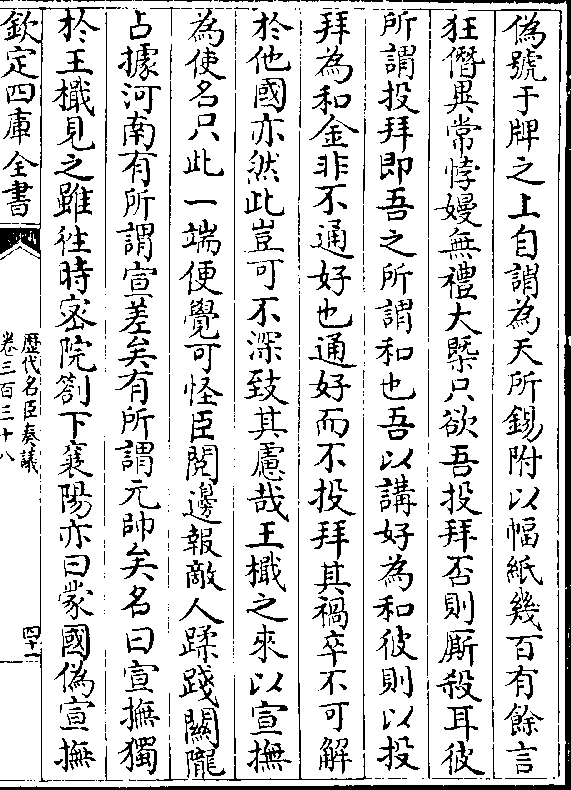 偽號于牌之上自謂為天所錫附以幅紙幾百有餘言
狂僭異常悖嫚無禮大槩只欲吾投拜否則厮殺耳彼
所謂投拜即吾之所謂和也吾以講好為和彼則以投
拜為和金非不通好也通好而不投拜其禍卒不可解
於他國亦然此豈可不深致其慮哉王檝之來以宣撫
為使名只此一端便覺可怪臣閱邊報敵人蹂踐關隴
占據河南有所謂宣差矣有所謂元帥矣名曰宣撫獨
於王檝見之雖徃時宻院劄下襄陽亦曰蒙國偽宣撫
欽定四庫全書
歴代名臣奏議
卷三百三十八
四十一